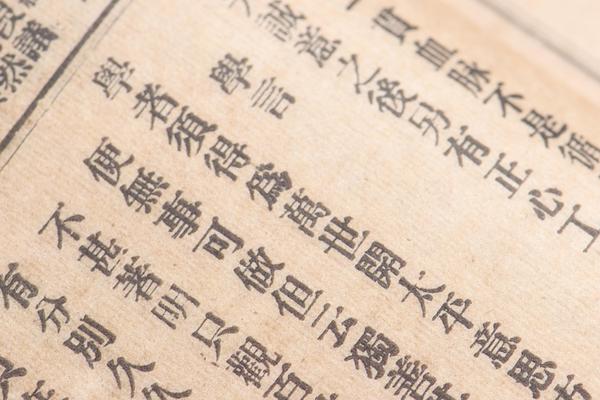 貫血脉不是俯
誠意之後另有正心工
學言
學者須得爲萬世開太平意思方
便無事可做但云獨善
不甚著明只觀百
有分別久久
然議